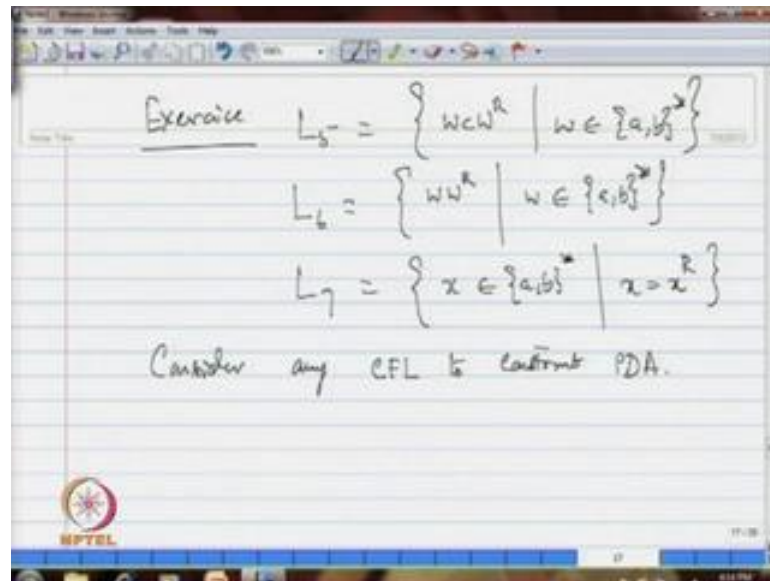 Exercise L₅ = { wcw^R | w ∈ {a,b}* }
L₆ = { ww^R | w ∈ {a,b}* }
L₇ = { x ∈ {a,b}* | x = x^R }
Consider any CFL to construct PDA.
NPTEL